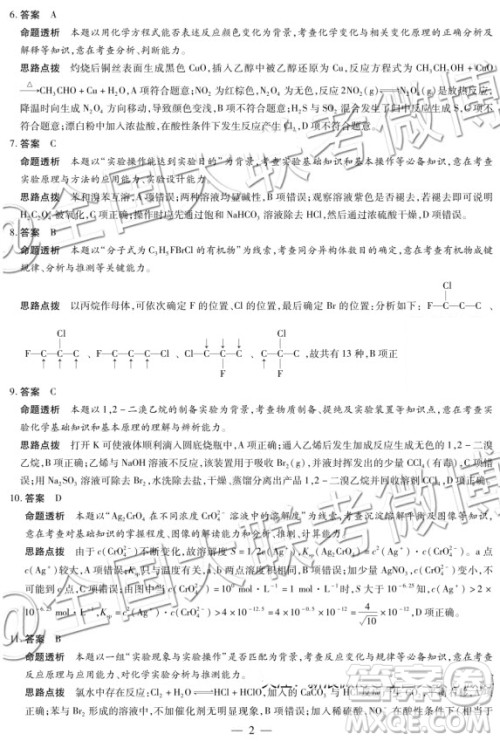 6. 答案 A
命题透析 本题以用化学方程式能否表述反应颜色变化为背景,考查化学变化与相关变化原理的正确分析及
解释等知识,意在考查分析、判断能力。
思路点拨 灼烧后铜丝表面生成黑色 CuO,插入乙醇中被乙醇还原为 Cu,反应方程式为 CH₃CH₂OH + CuO
△→CH₃CHO + Cu + H₂O,A 项符合题意;NO₂ 为红棕色,N₂O₄ 为无色,反应 2NO₂(g)⇌N₂O₄
降温时向生成 N₂O₄ 方向移动,导致颜色
不符合题意;漂白粉中加入浓盐酸,在酸性条件下发生反应产生 Cl₂,D 项不
7. 答案 C
命题透析 本题以“实验操作能达到实验目的”为背景,考查实验基础知识和基本操作等必备知识,意在考查
实验原理与方法的应用能力、实验设计能力。
思路点拨 苯和溴苯互溶,A 项错误;两溶液均显碱性,B 项错误;观察溶液紫色是否褪去,若褪去即可说明
H₂C₂O₄ 被氧化,C 项正确;操作时应先通过饱和 NaHCO₃ 溶液除去 HCl,然后通过浓硫酸干燥,D 项错误。
8. 答案 B
命题透析 本题以“分子式为 C₃H₅FBrCl 的有机物”为线索,考查同分异构体数目的确定,意在考查有机物成键
规律、分析与推测等关键能力。
思路点拨 以丙烷作母体,可依次确定 F 的位置、Cl 的位置,最后确定 Br 的位置;分析如下:F—C—C—C、
Cl
Cl Cl
F—C—C—C、F—C—C—C、Cl—C—C—C、C—C—C,故共有 13 种,B 项正
F F
9. 答案 C
命题透析 本题以 1,2 - 二溴乙烷的制备实验为背景,考查物质制备、提纯及实验装置等知识点,意在考查
实验化学基础知识和基本原理的理解与辨析能力。
思路点拨 打开 K 可使液体顺利滴入圆底烧瓶中,A 项正确;通入乙烯后发生加成反应生成无色的 1,2 - 二溴
乙烷,B 项正确;乙烯与 NaOH 溶液不反应,该装置用于吸收 Br₂(g),并防止挥发出的少量 CCl₄(有毒),C 项错
误;用 Na₂SO₃ 溶液可除去 Br₂,水洗除去盐,干燥、蒸馏分离出 1,2 - 二溴乙烷并回收溶剂 CCl₄,D 项正确
10. 答案 D
命题透析 本题以“Ag₂CrO₄ 在不同浓度 CrO₄²⁻ 溶液中的溶解度”为线索,考查沉淀溶解平衡及图像等知识,意
在考查对基础知识的掌握程度、图像的解读能力和分析、推测、计算能力。
思路点拨 由于 c(CrO₄²⁻)不断变化,故溶解度 S = 1/2c(Ag⁺)或 c(CrO₄²⁻)。a 点
c(Ag⁺)较大,A 项错误;Ksp 只与温度有关,a、b 两点温度积相同,B 项错误;加入 AgNO₃,c(CrO₄²⁻)变小,不
可能到 c 点,C 项错误;由图中当 c(CrO₄²⁻) = 10⁰ mol·L⁻¹ = 1 mol·L⁻¹时,S 大于 10⁻⁶·²⁵,即 c(Ag⁺) > 2 ×
10⁻⁶·²⁵ mol·L⁻¹,Ksp = c²(Ag⁺)·c(CrO₄²⁻) > 4 × 10⁻¹²·⁵ = 4 × 10⁻⁰·⁵ × 10⁻¹² = 4/√10 × 10⁻¹²,D 项正确。
11. 答案 B
命题透析 本题以一组“实验现象与实验操作”是否匹配为背景,考查反应变化与规律等必备知识,意在考查
反应原理与应用、对化学实验分析与推测能力。
思路点拨 氯水中存在反应:Cl₂ + H₂O⇌HCl + HClO,加入的 CaCO₃ 与 HCl
正确;苯与 Br₂ 形成的溶液中,加入铁粉,发生催化剂催化
— 2 —
@全国大联考微博
@全国大联考微博
答案圈